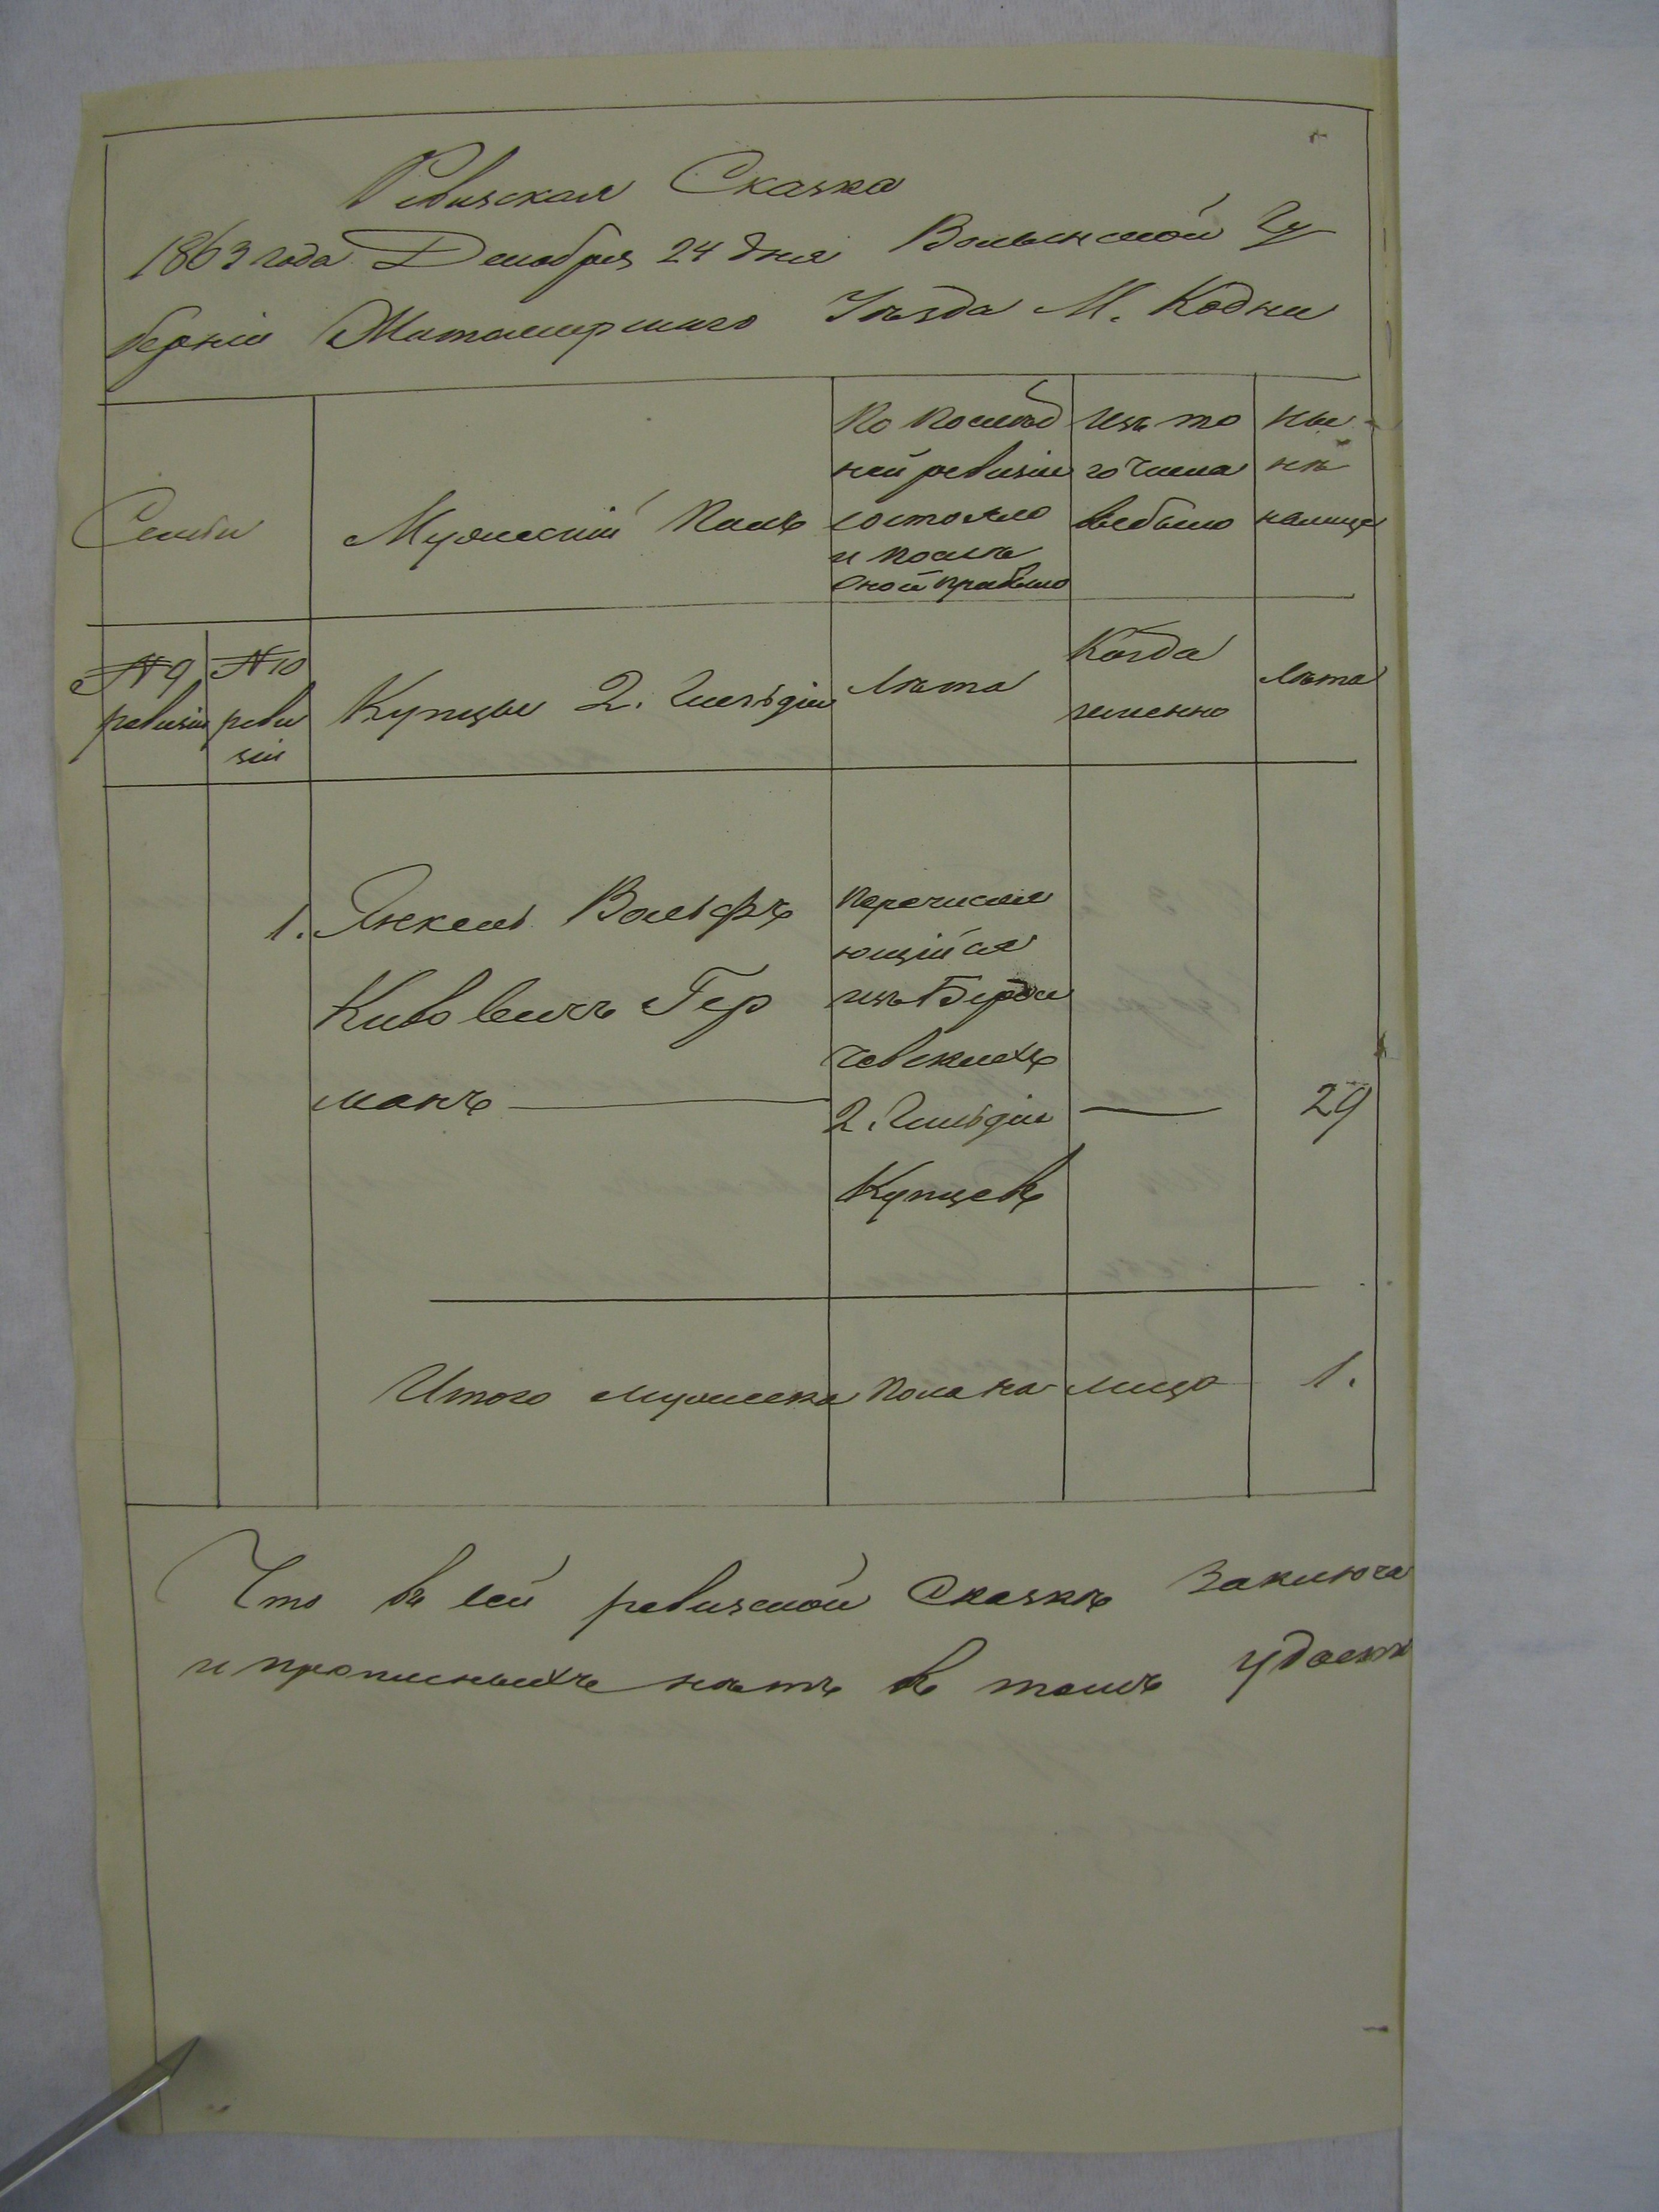 Ревизская Сказка
1863 года Декабря 24 дня Волынской Гу
берніи Житомирскаго Уѣзда М. Кодни
Семьи
Мужескій Полъ
По послѣд
ней ревизіи
состояло
и послѣ
оной прибыло
Изъ то
го числа
выбыло
Ны
нѣ
налице
№ 9
ревизіи
№ 10
реви
зіи
Купцы 2. Гильдіи
Лѣта
Когда
именно
Лѣта
1. Янкель Вольфъ
Кивовичъ Гер
манъ
Перечисля
ющійся
изъ Берди
чевскихъ
2. Гильдіи
Купцевъ
29
Итого мужеска пола на лицо 1.
Что въ сей ревизской Сказкѣ Заключа
и прописныхъ нѣтъ въ томъ удост